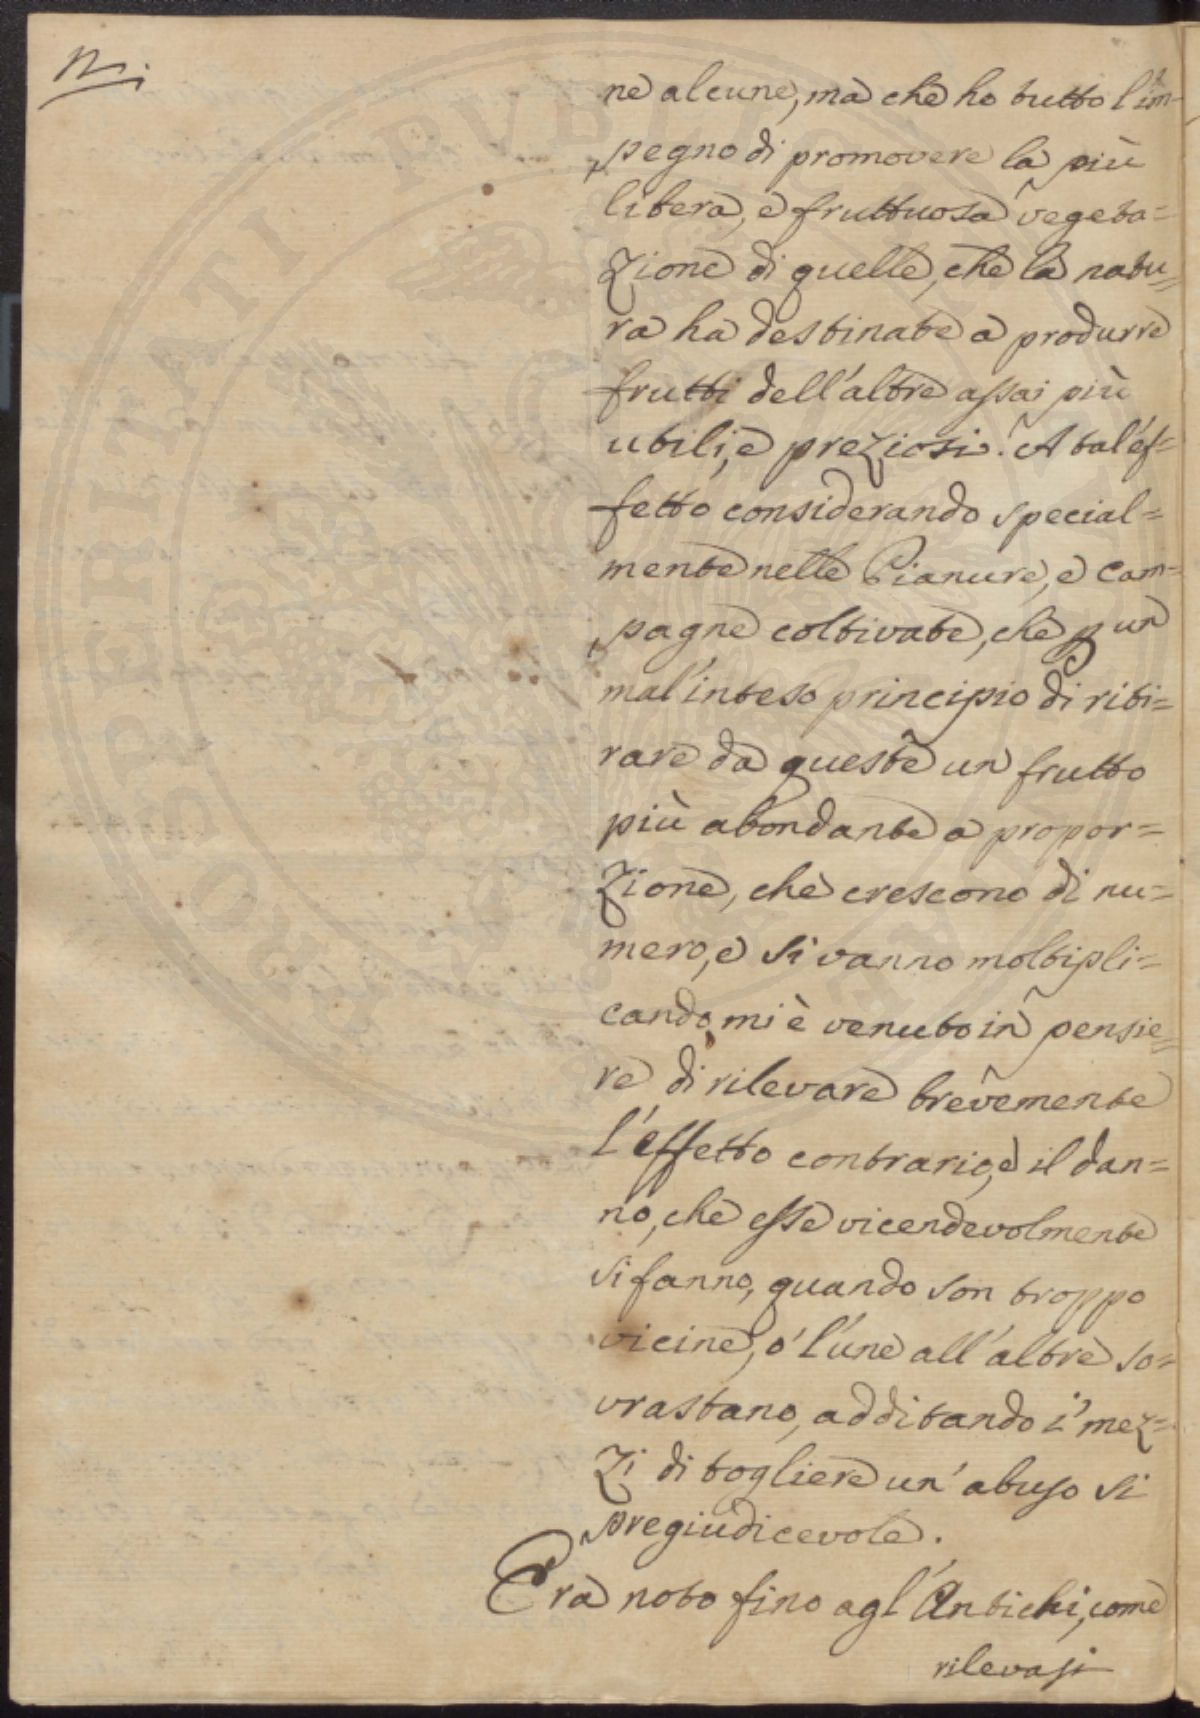 ne alcune, ma che ho tutto l'im-
pegno di promovere la più
libera, e fruttuosa vegeta=
zione di quelle, che la natu=
ra ha destinate a produrre
frutti dell'altre assai più
utili, e preziosi. A tal'ef=
fetto considerando special=
mente nelle Pianure, e cam=
pagne coltivate, che ꝑ un
mal'inteso principio di riti=
rare da queste un frutto
più abondante a propor=
zione, che crescono di nu=
mero, e si vanno moltipli=
cando, mi è venuto in pensie=
re di rilevare brevemente
l'effetto contrario, e il dan=
no, che esse vicendevolmente
si fanno, quando son troppo
vicine, o' l'une all'altre so=
vrastano, additando i' mez=
zi di togliere un' abuso si
pregiudicevole.
Era noto fino agl'Antichi, come
rilevasi
PUBLICAE
PROSPERITATI